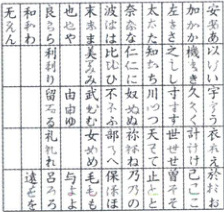 安ああ 以いい 宇うう 衣ええ 於おお
加かか 機きき 久くく 計けけ 己ここ
左ささ 之しし 寸すす 世せせ 曽そそ
太たた 知ちち 川つつ 天てて 止とと
奈なな 仁にに 奴ぬぬ 祢ねね 乃のの
波はは 比ひひ 不ふふ 部へへ 保ほほ
末まま 美みみ 武むむ 女めめ 毛もも
也やや 由ゆゆ 与よよ
良らら 利りり 留るる 礼れれ 呂ろろ
和わわ 遠をを
无んん